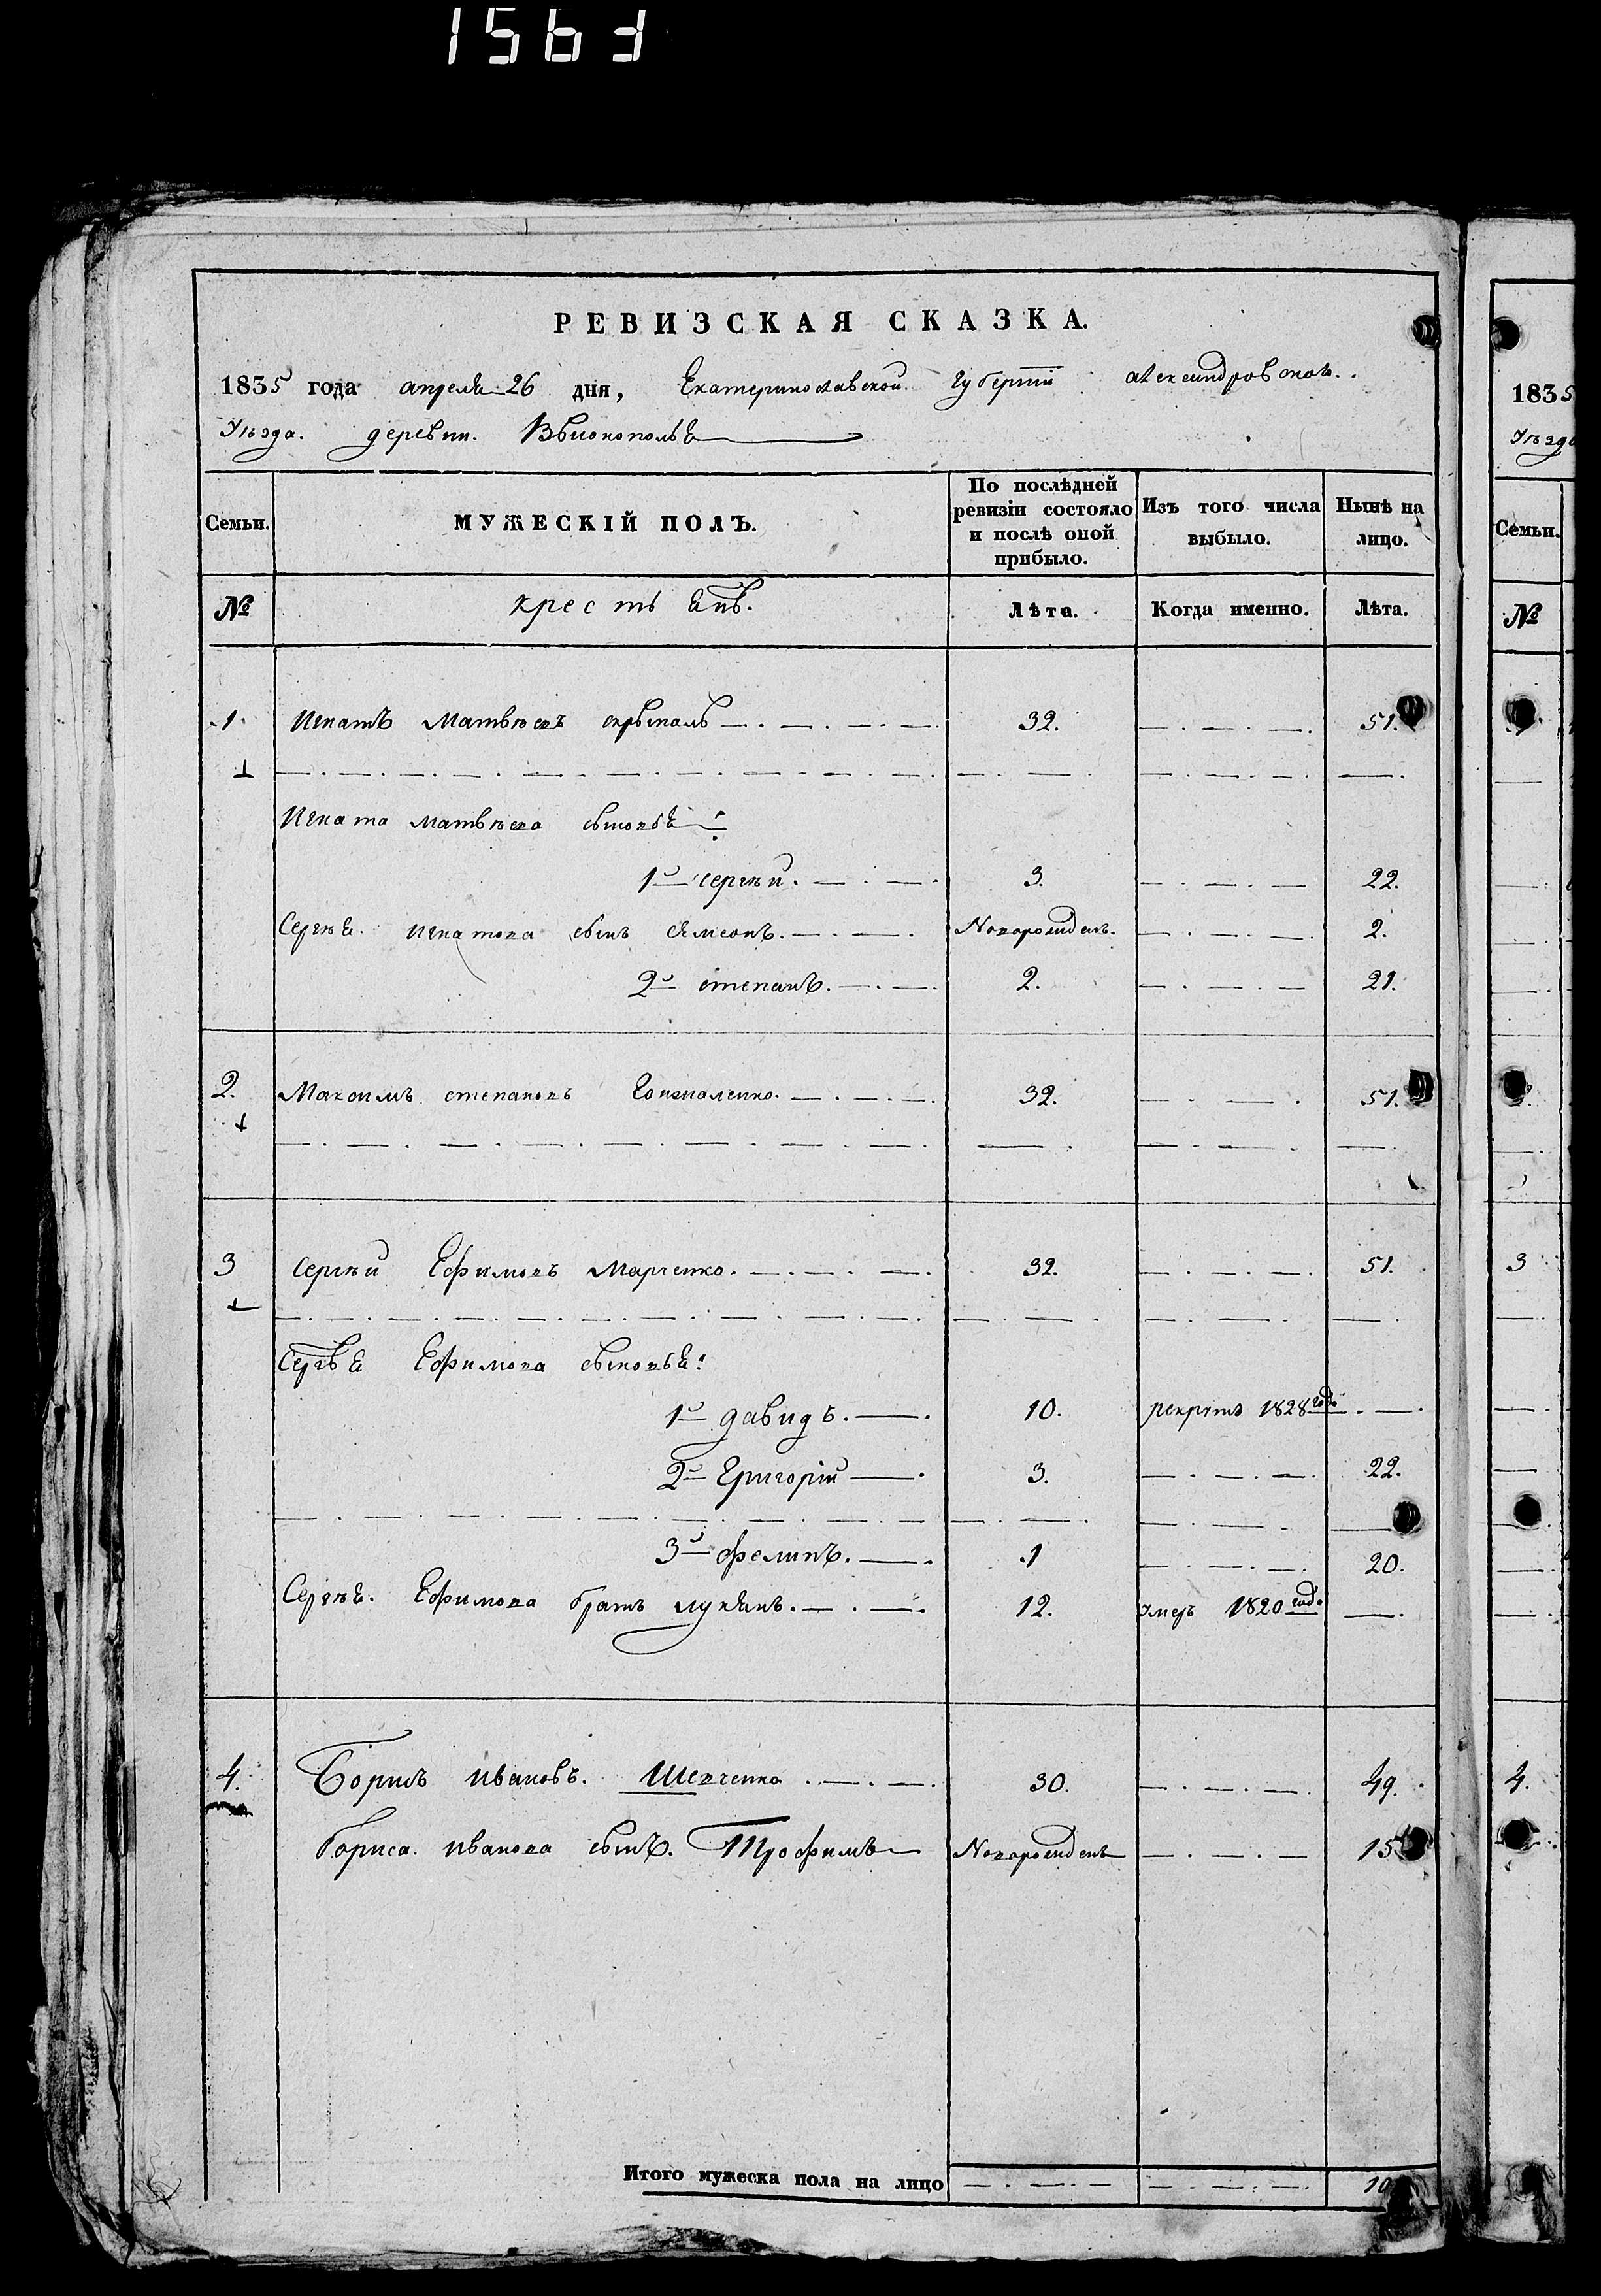 1563
РЕВИЗСКАЯ СКАЗКА.
1835 года апреля 26 дня, Екатеринославской Губернии александровского
Уѣзда. деревни.
Семьи. МУЖЕСКІЙ ПОЛЪ. По послѣдней ревизіи состояло и послѣ оной прибыло. Изъ того числа выбыло. Нынѣ на лицо.
№ крестьянъ. Лѣта. Когда именно. Лѣта.
1. Игнатъ Матвѣевъ 32. 51.
Игната матвѣева сыновья:
1й сергѣй. 3. 22.
Сергѣя. игнатова сынъ Новорожденъ. 2.
2й степанъ. 2. 21.
2. Максимъ степановъ 32. 51.
3 сергѣй Ефимовъ Марченко. 32. 51.
Сергѣя Ефимова сыновья:
1й давидъ. 10. рекрутъ 1828 годо
2й Григорій 3. 22.
3й филипъ. 1 20.
Сергѣя. Ефимова братъ лукянъ. 12. умеръ 1820 года
4. Борисъ ивановъ. Шевченко 30. 49.
бориса. иванова сынъ. Трофимъ Новорожденъ 15
Итого мужеска пола на лицо 10
1835
Уѣзда
Семьи.
№
3
4.